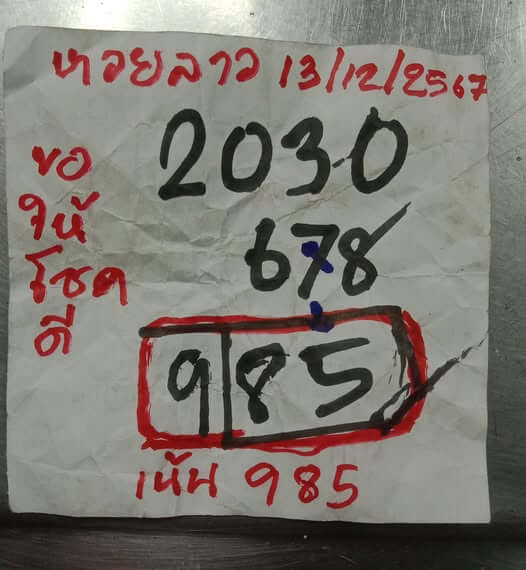 หวยลาว 13/12/2567
2030
678
985
ขอ
ให้
โชค
ดี
เน้น 985